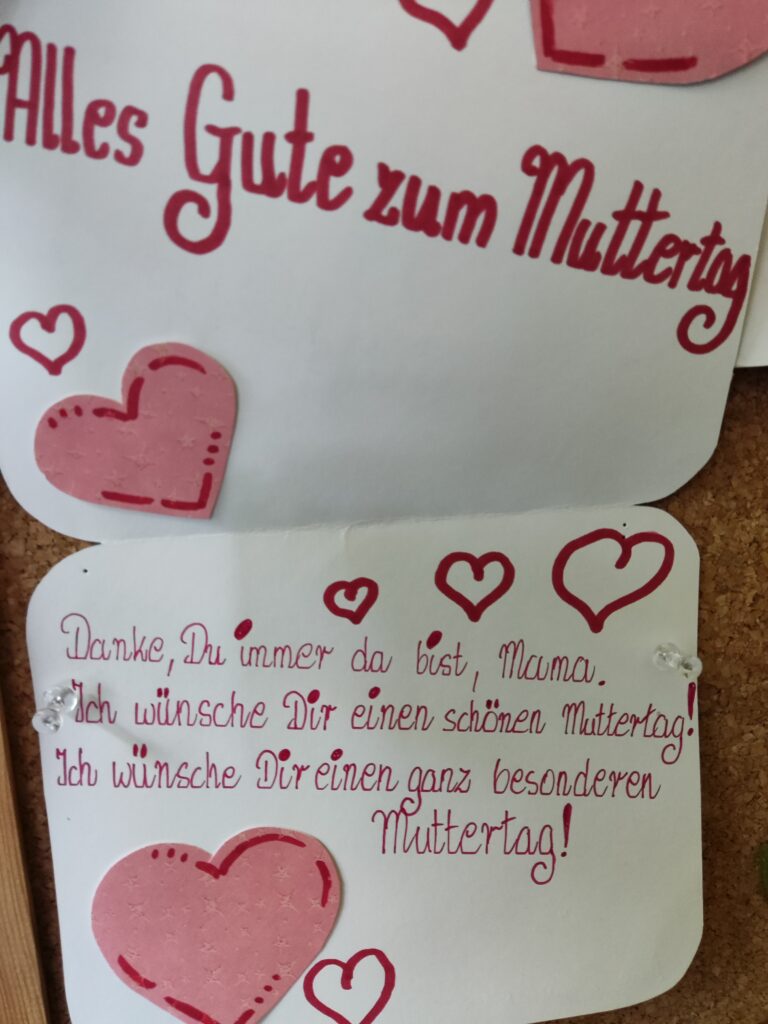 Alles Gute zum Muttertag
Danke, Du immer da bist, Mama.
Ich wünsche Dir einen schönen Muttertag!
Ich wünsche Dir einen ganz besonderen
Muttertag!